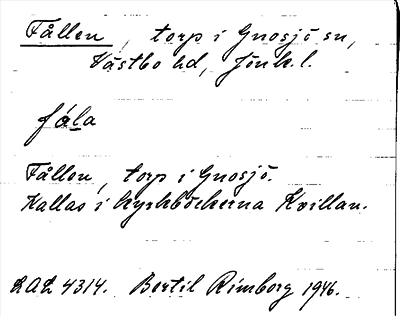 Fållen, torp i Gnosjö sn,
Västbo hd, Jönk. l.
fåla
Fållen, torp i Gnosjö.
Kallas i kyrkböckerna Kvillan.
LAL 4314. Bertil Rimborg 1946.